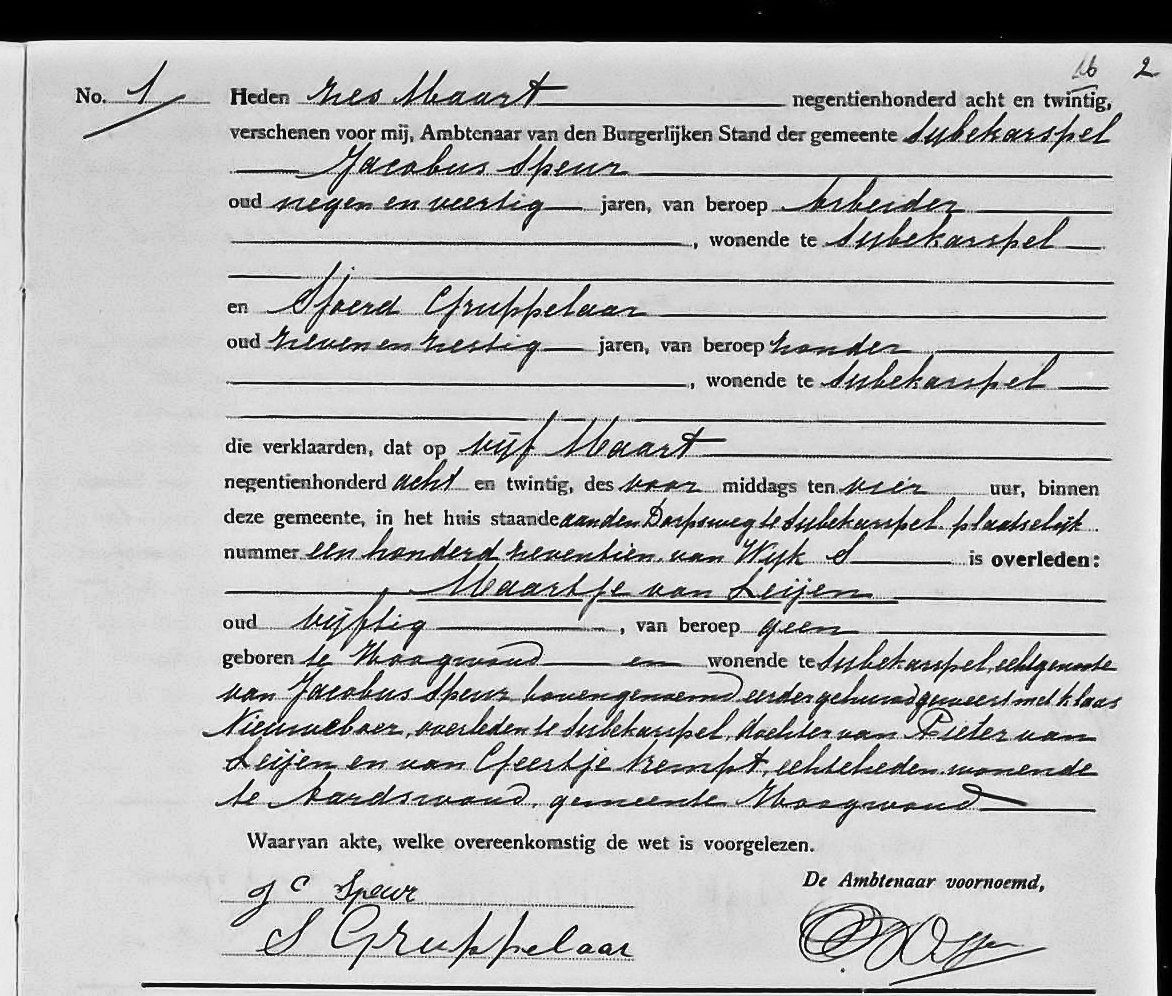 16 2
No. 1 Heden zes Maart negentienhonderd acht en twintig,
verschenen voor mij, Ambtenaar van den Burgerlijken Stand der gemeente Sijbekarspel
Jacobus Speur
oud negen en veertig jaren, van beroep Arbeider
, wonende te Sijbekarspel
en Sjoerd Gruppelaar
oud zeven en zestig jaren, van beroep zonder
, wonende te Sijbekarspel
die verklaarden, dat op vijf Maart
negentienhonderd acht en twintig, des voor middags ten vier uur, binnen
deze gemeente, in het huis staande aan den Dorpsweg te Sijbekarspel plaatselijk
nummer een honderd zeventien van Wijk S is overleden:
Maartje van Leijen
oud vijftig , van beroep geen
geboren te Hoogwoud en wonende te Sijbekarspel, echtgenoote
van Jacobus Speur bovengenoemd eerder gehuwd geweest met Klaas
Nieuweboer, overleden te Sijbekarspel, dochter van Pieter van
Leijen en van Geertje Kempt, echtelieden wonende
te Aardswoud, gemeente Hoogwoud
Waarvan akte, welke overeenkomstig de wet is voorgelezen.
De Ambtenaar voornoemd,
J C Speur
S Gruppelaar